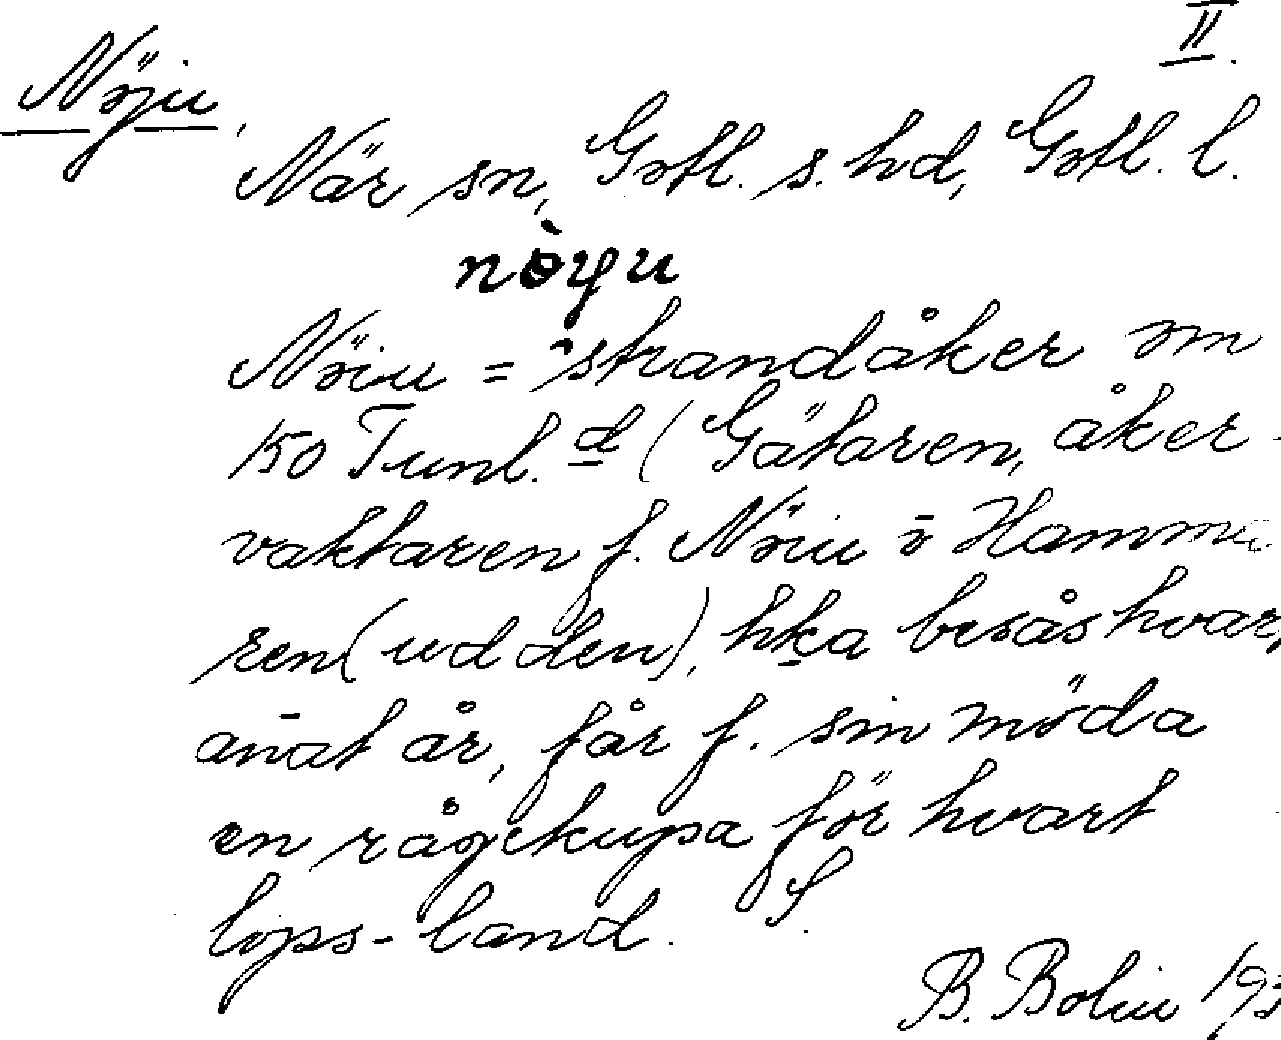 II.
Nöju,
När sn, Gotl. s. hd, Gotl. l.
nòyu
Nöiu = strandåker om
150 Tunl. d (Gätaren, åker-
vaktaren f. Nöiu ō Hamma
ren (udden), hka besås hvar,
an̄at år, får f. sin möda
en rågskupa för hvart
lops-land. S.
B. Bolin 193